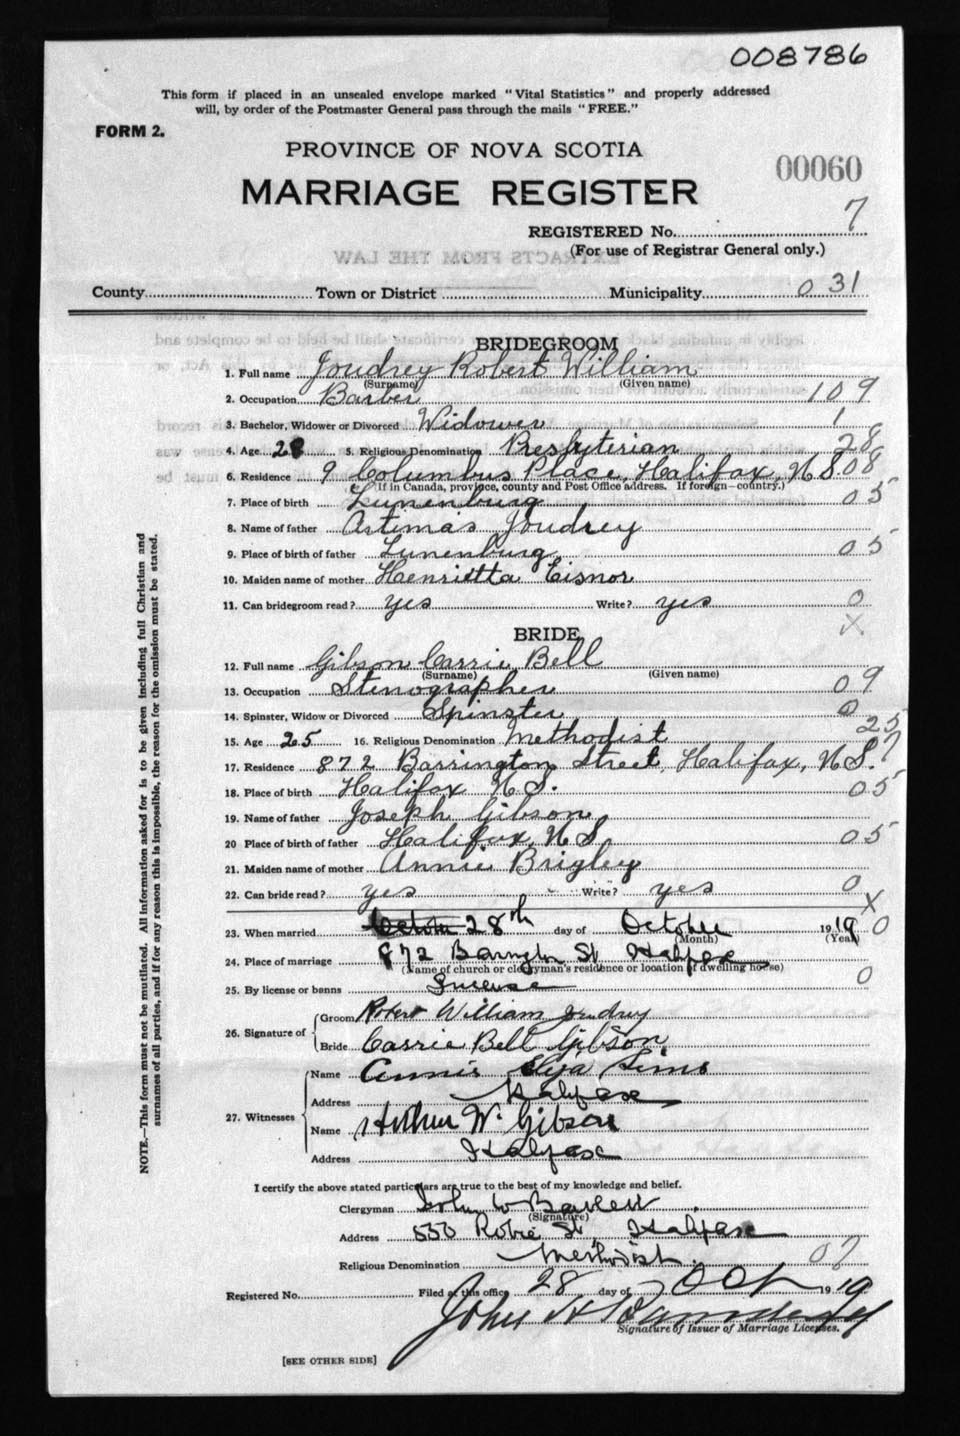 008786
This form if placed in an unsealed envelope marked "Vital Statistics" and properly addressed
will, by order of the Postmaster General pass through the mails "FREE."
FORM 2.
PROVINCE OF NOVA SCOTIA
00060
MARRIAGE REGISTER
REGISTERED No. 7
(For use of Registrar General only.)
EXTRACTS FROM THE LAW
County Town or District Municipality 031
BRIDEGROOM
1. Full name Joudrey Robert William
(Surname) (Given name)
2. Occupation Barber 109
3. Bachelor, Widower or Divorced Widower 1
4. Age 28 5. Religious Denomination Presbyterian 28
6. Residence 9 Columbus Place, Halifax, N S. 08
(If in Canada, province, county and Post Office address. If foreign—country.)
7. Place of birth Lunenburg 05
8. Name of father Artimas Joudrey
9. Place of birth of father Lunenburg, 05
10. Maiden name of mother Henrietta Eisnor
11. Can bridegroom read? yes Write? yes 0
X
BRIDE
12. Full name Gibson Carrie Bell
(Surname) (Given name)
13. Occupation Stenographer 09
14. Spinster, Widow or Divorced Spinster 0
15. Age 25 16. Religious Denomination Methodist 25
17. Residence 872 Barrington Street, Halifax, N S. 7
18. Place of birth Halifax N S. 05
19. Name of father Joseph Gibson
20 Place of birth of father Halifax, N S 05
21. Maiden name of mother Annie Brigley
22. Can bride read? yes Write? yes 0
X
23. When married 28th day of October 1919 0
(Month) (Year)
24. Place of marriage 872 Barrington St Halifax
(Name of church or clergyman's residence or location of dwelling house)
25. By license or banns License 0
26. Signature of Groom Robert William Joudrey
Bride Carrie Bell Gibson
27. Witnesses Name Annie Sims
Address Halifax
Name Arthur W. Gibson
Address Halifax
I certify the above stated particulars are true to the best of my knowledge and belief.
Clergyman John W Bartlett
(Signature)
Address 550 Robie St Halifax
Religious Denomination Methodist. 07
Registered No. Filed at this office 28 day of Oct 1919
John H
Signature of Issuer of Marriage Licenses.
[SEE OTHER SIDE]
NOTE.—This form must not be mutilated. All information asked for is to be given including full Christian and
surnames of all parties, and if for any reason this is impossible, the reason for the omission must be stated.